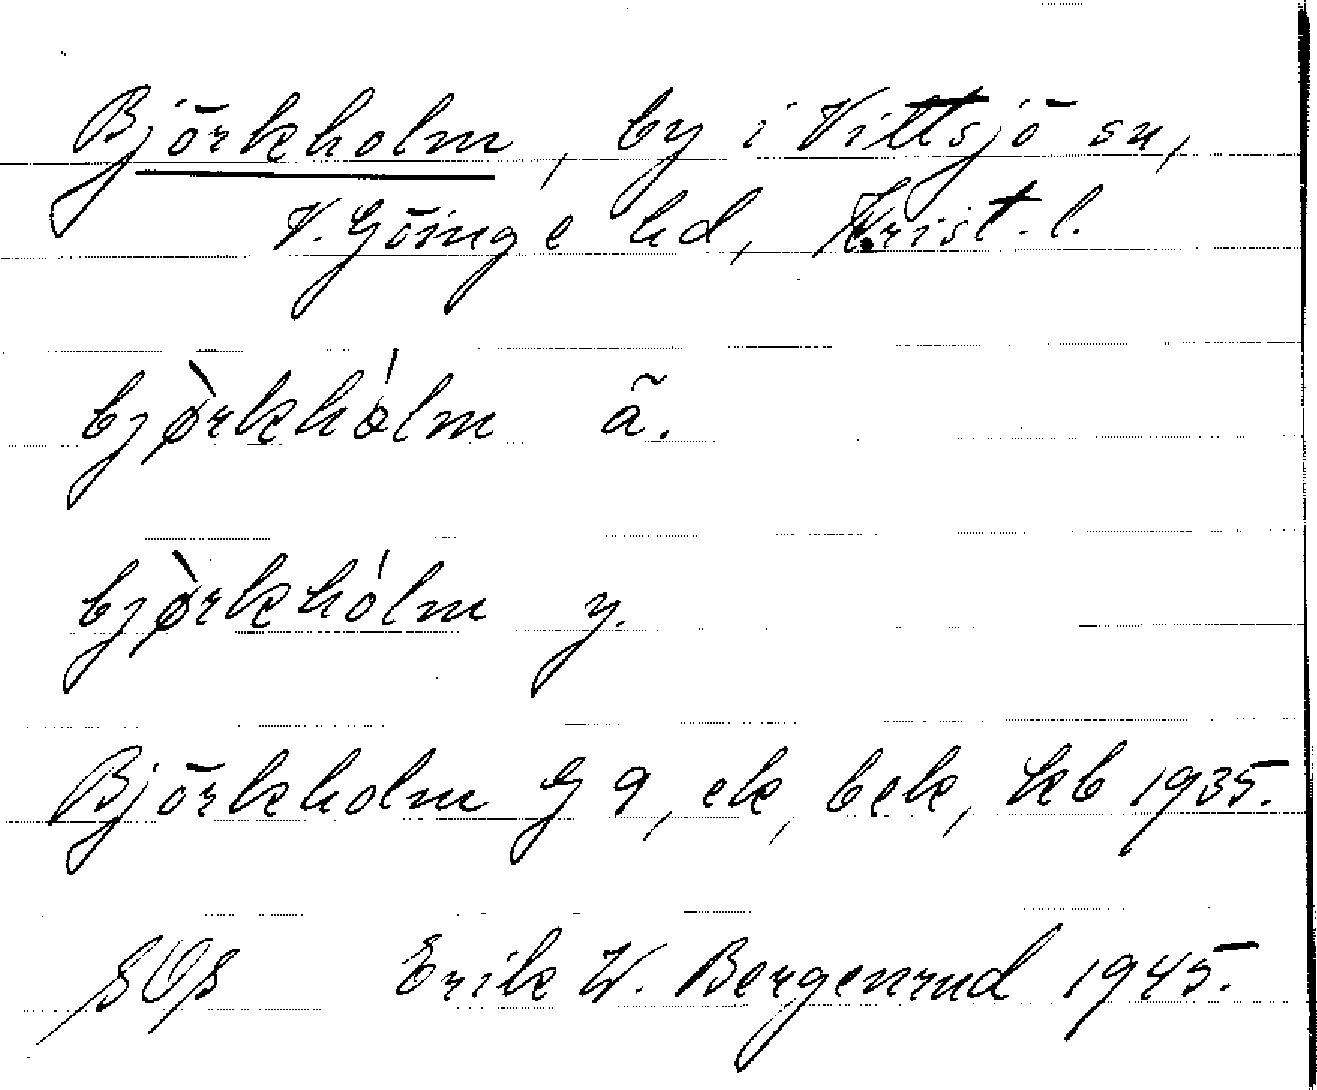 Björkholm, by i Vittsjö sn,
V. Göinge hd, Krist. l.
bjø̀rkhólm ä.
bjø̀rkhólm y.
Björkholm G 9, ek, bek, kb 1935.
SOS Erik W. Bergenrud 1945.